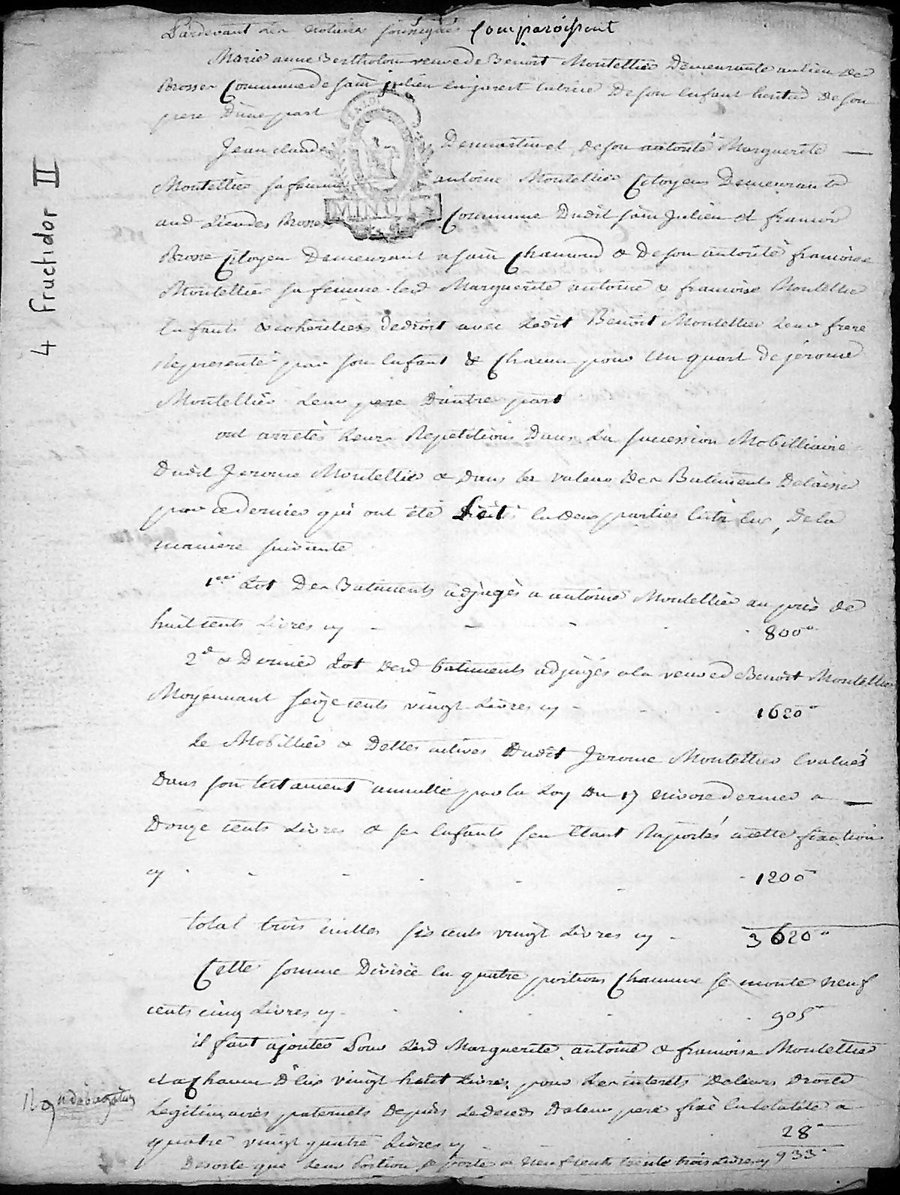 Pardevant les notaires soussignés Comparoissent
Marie anne Bertholon veuve de Benoit Montellier Demeurante au lieu de
Brosses Commune de sain julien en jarest tutrice De son Enfant heritier de son
pere D'une part
Jean claude Desmartinet, de son autorité Marguerite
Montellier sa femme antoine Montellier Citoyens Demeurants
aud Lieu des Brosses Commune Dudit sain julien et francois
Brosse Citoyen Demeurant a sain Chamond & De son autorité francoise
Montellier sa femme lesd Marguerite antoine & francoise Montellier
Enfants & cohéritiers de droit avec Ledit Benoit Montellier Leur frere
Representé par son Enfant & Chacun pour Un quart de jerome
Montellier Leur pere D'autre part
ont arretés Leurs Repetitions Dans La succession Mobilliaire
Dudit Jerome Montellier & Dans les valeurs Des Batiments Delaissés
par ce dernier qui ont été en Deux parties Entr'eux, De la
maniere suivante
1er Lot Des Batiments adjugés a antoine Montellier au prix de
huit cents Livres cy 800
2d & Dernier Lot desd batiments adjugés a la veuve de Benoit Montellier
Moyennant seize cents vingt Livres cy 1620
Le Mobillier & Dettes actives Dudit Jerome Montellier Evalués
Dans son testament annullé par la Loy du 17 nivose dernier a
Douze cents Livres & ses Enfants s'en Etant Raportés a cette fixation
cy 1200
total trois milles six cents vingt Livres cy 3620
Cette somme Divisée en quatre portions Chacune se monte neuf
cents cinq Livres cy 905
il faut ajouter Pour Lesd Marguerite, antoine & francoise Montellier
et a Chacun D'Eux vingt huit Livres pour Les interets De leurs Droits
Legitimaires paternels Depuis Le deces De leur pere fixé En totalité a
quatre vingt quatre Livres cy 28
De sorte que Leur Portion se porte a neuf cents trente trois Livres cy 933
4 fructidor II
MINUT